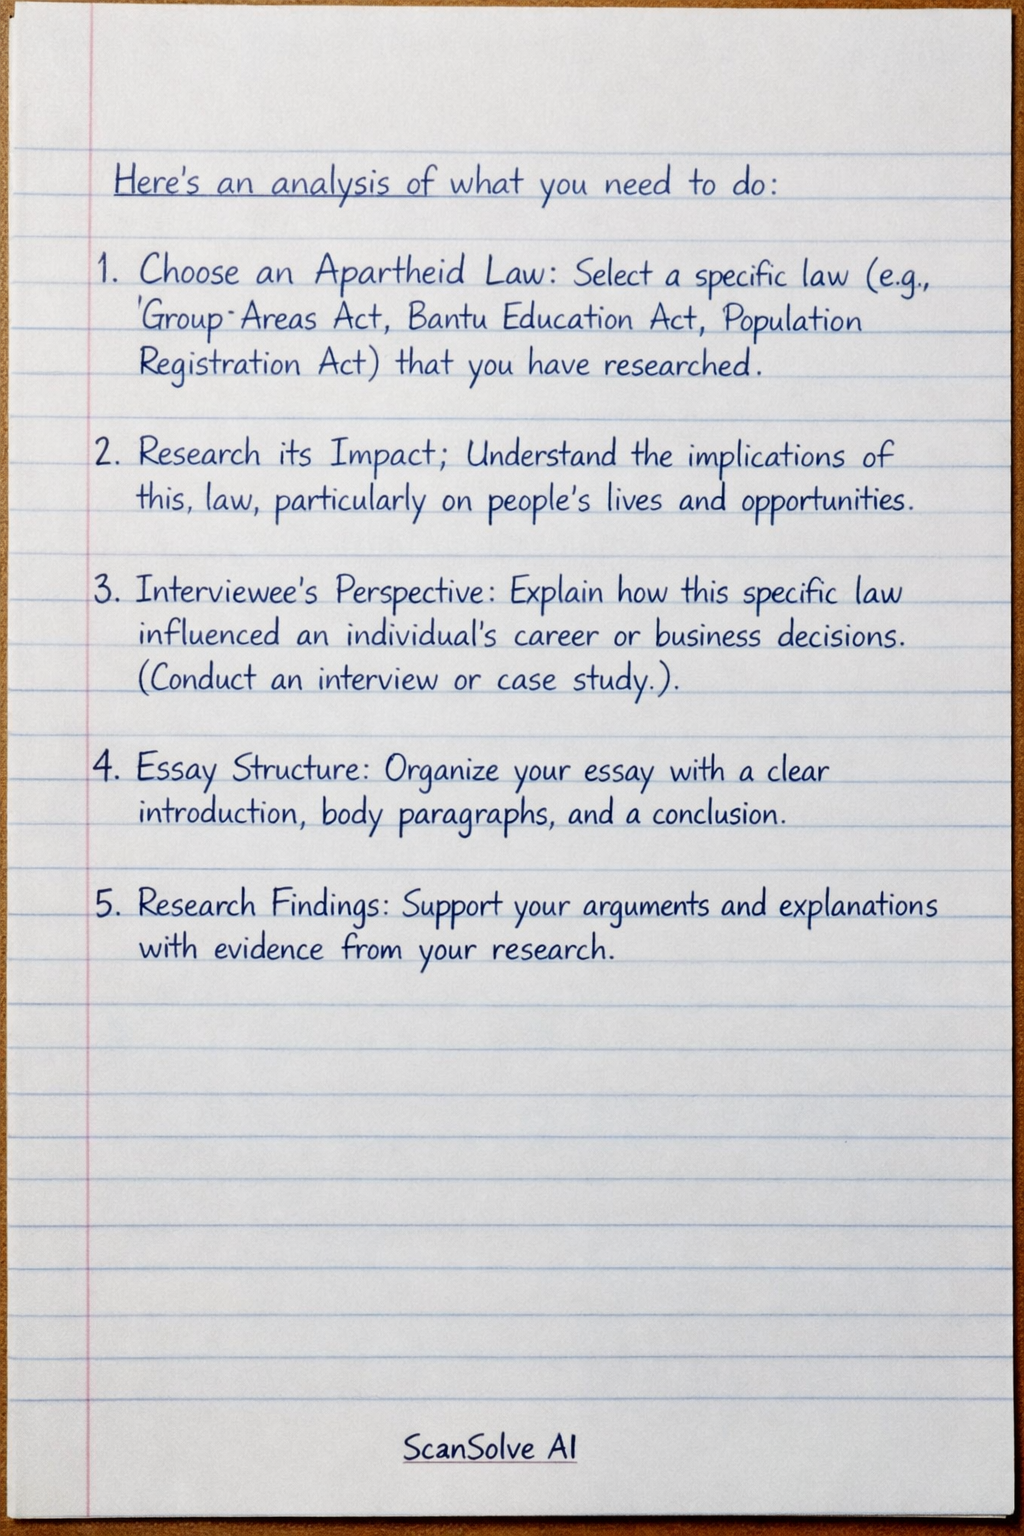 Here's an analysis of what you need to do:
1. Choose an Apartheid Law: Select a specific law (e.g.,
'Group-Areas Act, Bantu Education Act, Population
Registration Act) that you have researched.
2. Research its Impact; Understand the implications of
this, law, particularly on people's lives and opportunities.
3. Interviewee's Perspective: Explain how this specific law
influenced an individual's career or business decisions.
(Conduct an interview or case study.).
4. Essay Structure: Organize your essay with a clear
introduction, body paragraphs, and a conclusion.
5. Research Findings: Support your arguments and explanations
with evidence from your research.
ScanSolve AI